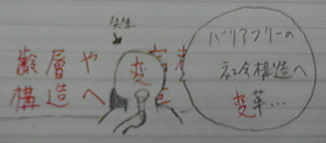 齢層や
構造へ
変
バリアフリーの
社会構造へ
変革…